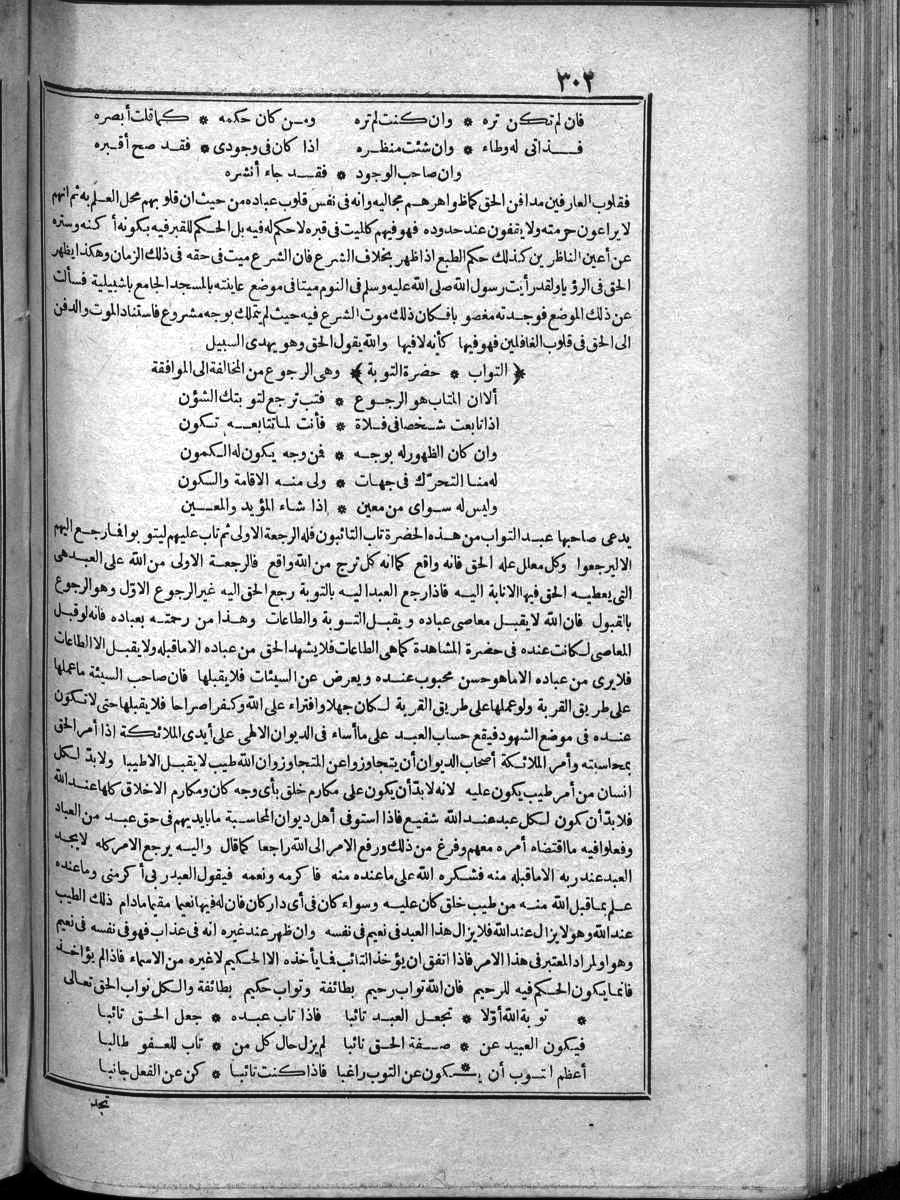 ٣٠٢
فان لم تكن تره * وان كنت لم تره ومن كان حكمه * كما قلت أبصره
فذاتى له وطاء * وان شئت منظره اذا كان فى وجودى * فقد صح أقبره
وان صاحب الوجود * فقد جاء أنشره
فقلوب العارفين مدافن الحق كما ظواهرهم مجاليه وانه فى نفس قلوب عباده من حيث ان قلوبهم محل العلم به ثم انهم
لا يراعون حرمته ولا يقفون عند حدوده فهو فيهم كالميت فى قبره لا حكم له فيه بل الحكم للقبر فيه بكونه أكنه وستره
عن أعين الناظرين كذلك حكم الطبع اذا ظهر بخلاف الشرع فان الشرع ميت فى حقه فى ذلك الزمان وهكذا يظهر
الحق فى الرؤيا ولقد رأيت رسول الله صلى الله عليه وسلم فى النوم ميتا فى موضع عاينته بالمسجد الجامع باشبيلية فسألت
عن ذلك الموضع فوجدته مغصوبا فكان ذلك موت الشرع فيه حيث لم يتملك بوجه مشروع فاستناد الموت والدفن
الى الحق فى قلوب الغافلين فهو فيها كأنه لا فيها والله يقول الحق وهو يهدى السبيل
﴿ التواب * حضرة التوبة ﴾ * وهى الرجوع من المخالفة الى الموافقة
ألا ان المتاب هو الرجوع * فتب ترجع لتوبتك الشؤن
اذا تابعت شخصا فى فلاة * فأنت لما تتابعه تكون
وان كان الظهور له بوجه * فمن وجه يكون له الكمون
له منا التحرّك فى جهات * ولى منه الاقامة والسكون
وليس له سواى من معين * اذا شاء المؤيد والمعين
يدعى صاحبها عبد التواب من هذه الحضرة تاب التائبون فله الرجعة الاولى ثم تاب عليهم ليتوبوا فما رجع اليهم
الا ليرجعوا وكل معلل علله الحق فانه واقع كما انه كل ترج من الله واقع فالرجعة الاولى من الله على العبد هى
التى يعطيه الحق فيها الانابة اليه فاذا رجع العبد اليه بالتوبة رجع الحق اليه غير الرجوع الاوّل وهو الرجوع
بالقبول فان الله لا يقبل معاصى عباده ويقبل التوبة والطاعات وهذا من رحمته بعباده فانه لو قبل
المعاصى لكانت عنده فى حضرة المشاهدة كما هى الطاعات فلا يشهد الحق من عباده الا ما قبله ولا يقبل الا الطاعات
فلا يرى من عباده الا ما هو حسن محبوب عنده ويعرض عن السيئات فلا يقبلها فان صاحب السيئة ما عملها
على طريق القربة ولو عملها على طريق القربة لكان جهلا وافتراء على الله وكفرا صراحا فلا يقبلها حتى لا تكون
عنده فى موضع الشهود فيقع حساب العبد على ما أساء فى الديوان الالهى على أيدى الملائكة اذا أمر الحق
بمحاسبته وأمر الملائكة أصحاب الديوان أن يتجاوزوا عن المتجاوز وان الله طيب لا يقبل الا طيبا ولا بدّ لكل
انسان من أمر طيب يكون عليه لانه لا بدّ أن يكون على مكارم خلق بأى وجه كان ومكارم الاخلاق كلها عند الله
فلا بدّ أن كون لكل عبد عند الله شفيع فاذا استوفى أهل ديوان المحاسبة ما بايديهم فى حق عبد من العباد
وفعلوا فيه ما اقتضاه أمره معهم وفرغ من ذلك ورفع الامر الى الله راجعا كما قال واليه يرجع الامر كله لا يجد
العبد عند ربه الا ما قبله منه فشكره الله على ما عنده منه فاكرمه ونعمه فيقول العبد ربى أكرمنى وما عنده
علم بما قبل الله منه من طيب خلق كان عليه وسواء كان فى أى دار كان فان له فيها نعيما مقيما ما دام ذلك الطيب
عند الله وهو لا يزال عند الله فلا يزال هذا العبد فى نعيم فى نفسه وان ظهر عند غيره انه فى عذاب فهو فى نفسه فى نعيم
وهو اولمراد المعتبر فى هذا الامر فاذا اتفق ان يؤخذ التائب فما يأخذه الا الحكيم لا غيره من الاسماء فاذا لم يؤاخذ
فانما يكون الحكم فيه للرحيم فان الله تواب رحيم بطائفة وتواب حكيم بطائفة والكل تواب الحق تعالى
* توبة الله أوّلا * تجعل العبد تائبا فاذا تاب عبده * جعل الحق تائبا
فيكون العبيد عن * صفة الحق نائبا لم يزل حال كل من * تاب للعفو طالبا
أعظم التوب أن يكون * عن التوب راغبا فاذا كنت تائبا * كن عن الفعل جانبا
تجد